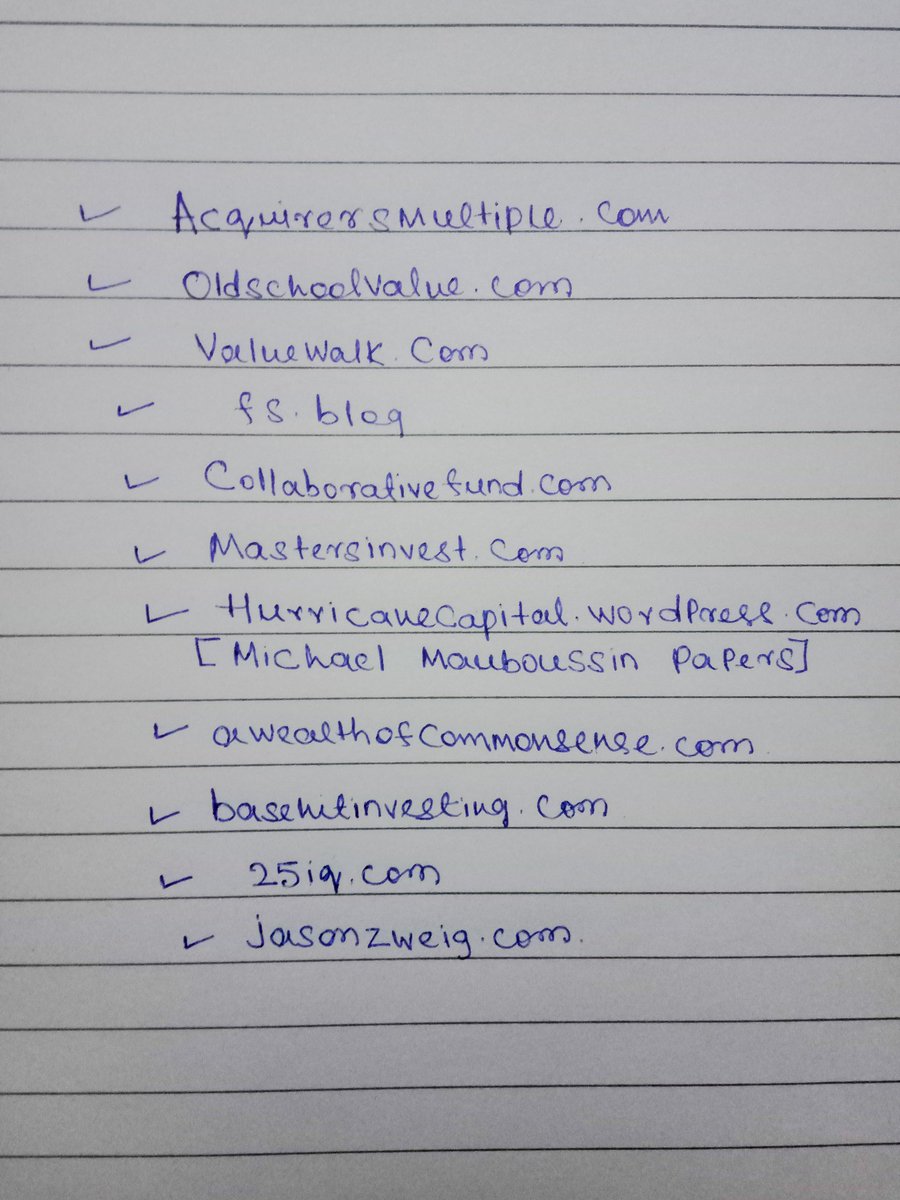 ✓ Acquirersmultiple.com
✓ Oldschoolvalue.com
✓ Valuewalk.Com
✓ fs.blog
✓ Collaborativefund.com
✓ Mastersinvest.com
✓ Hurricanecapital.wordpress.com
[Michael Mauboussin Papers]
✓ awealthofcommonsense.com
✓ basehitinvesting.com
✓ 25iq.com
✓ jasonzweig.com.